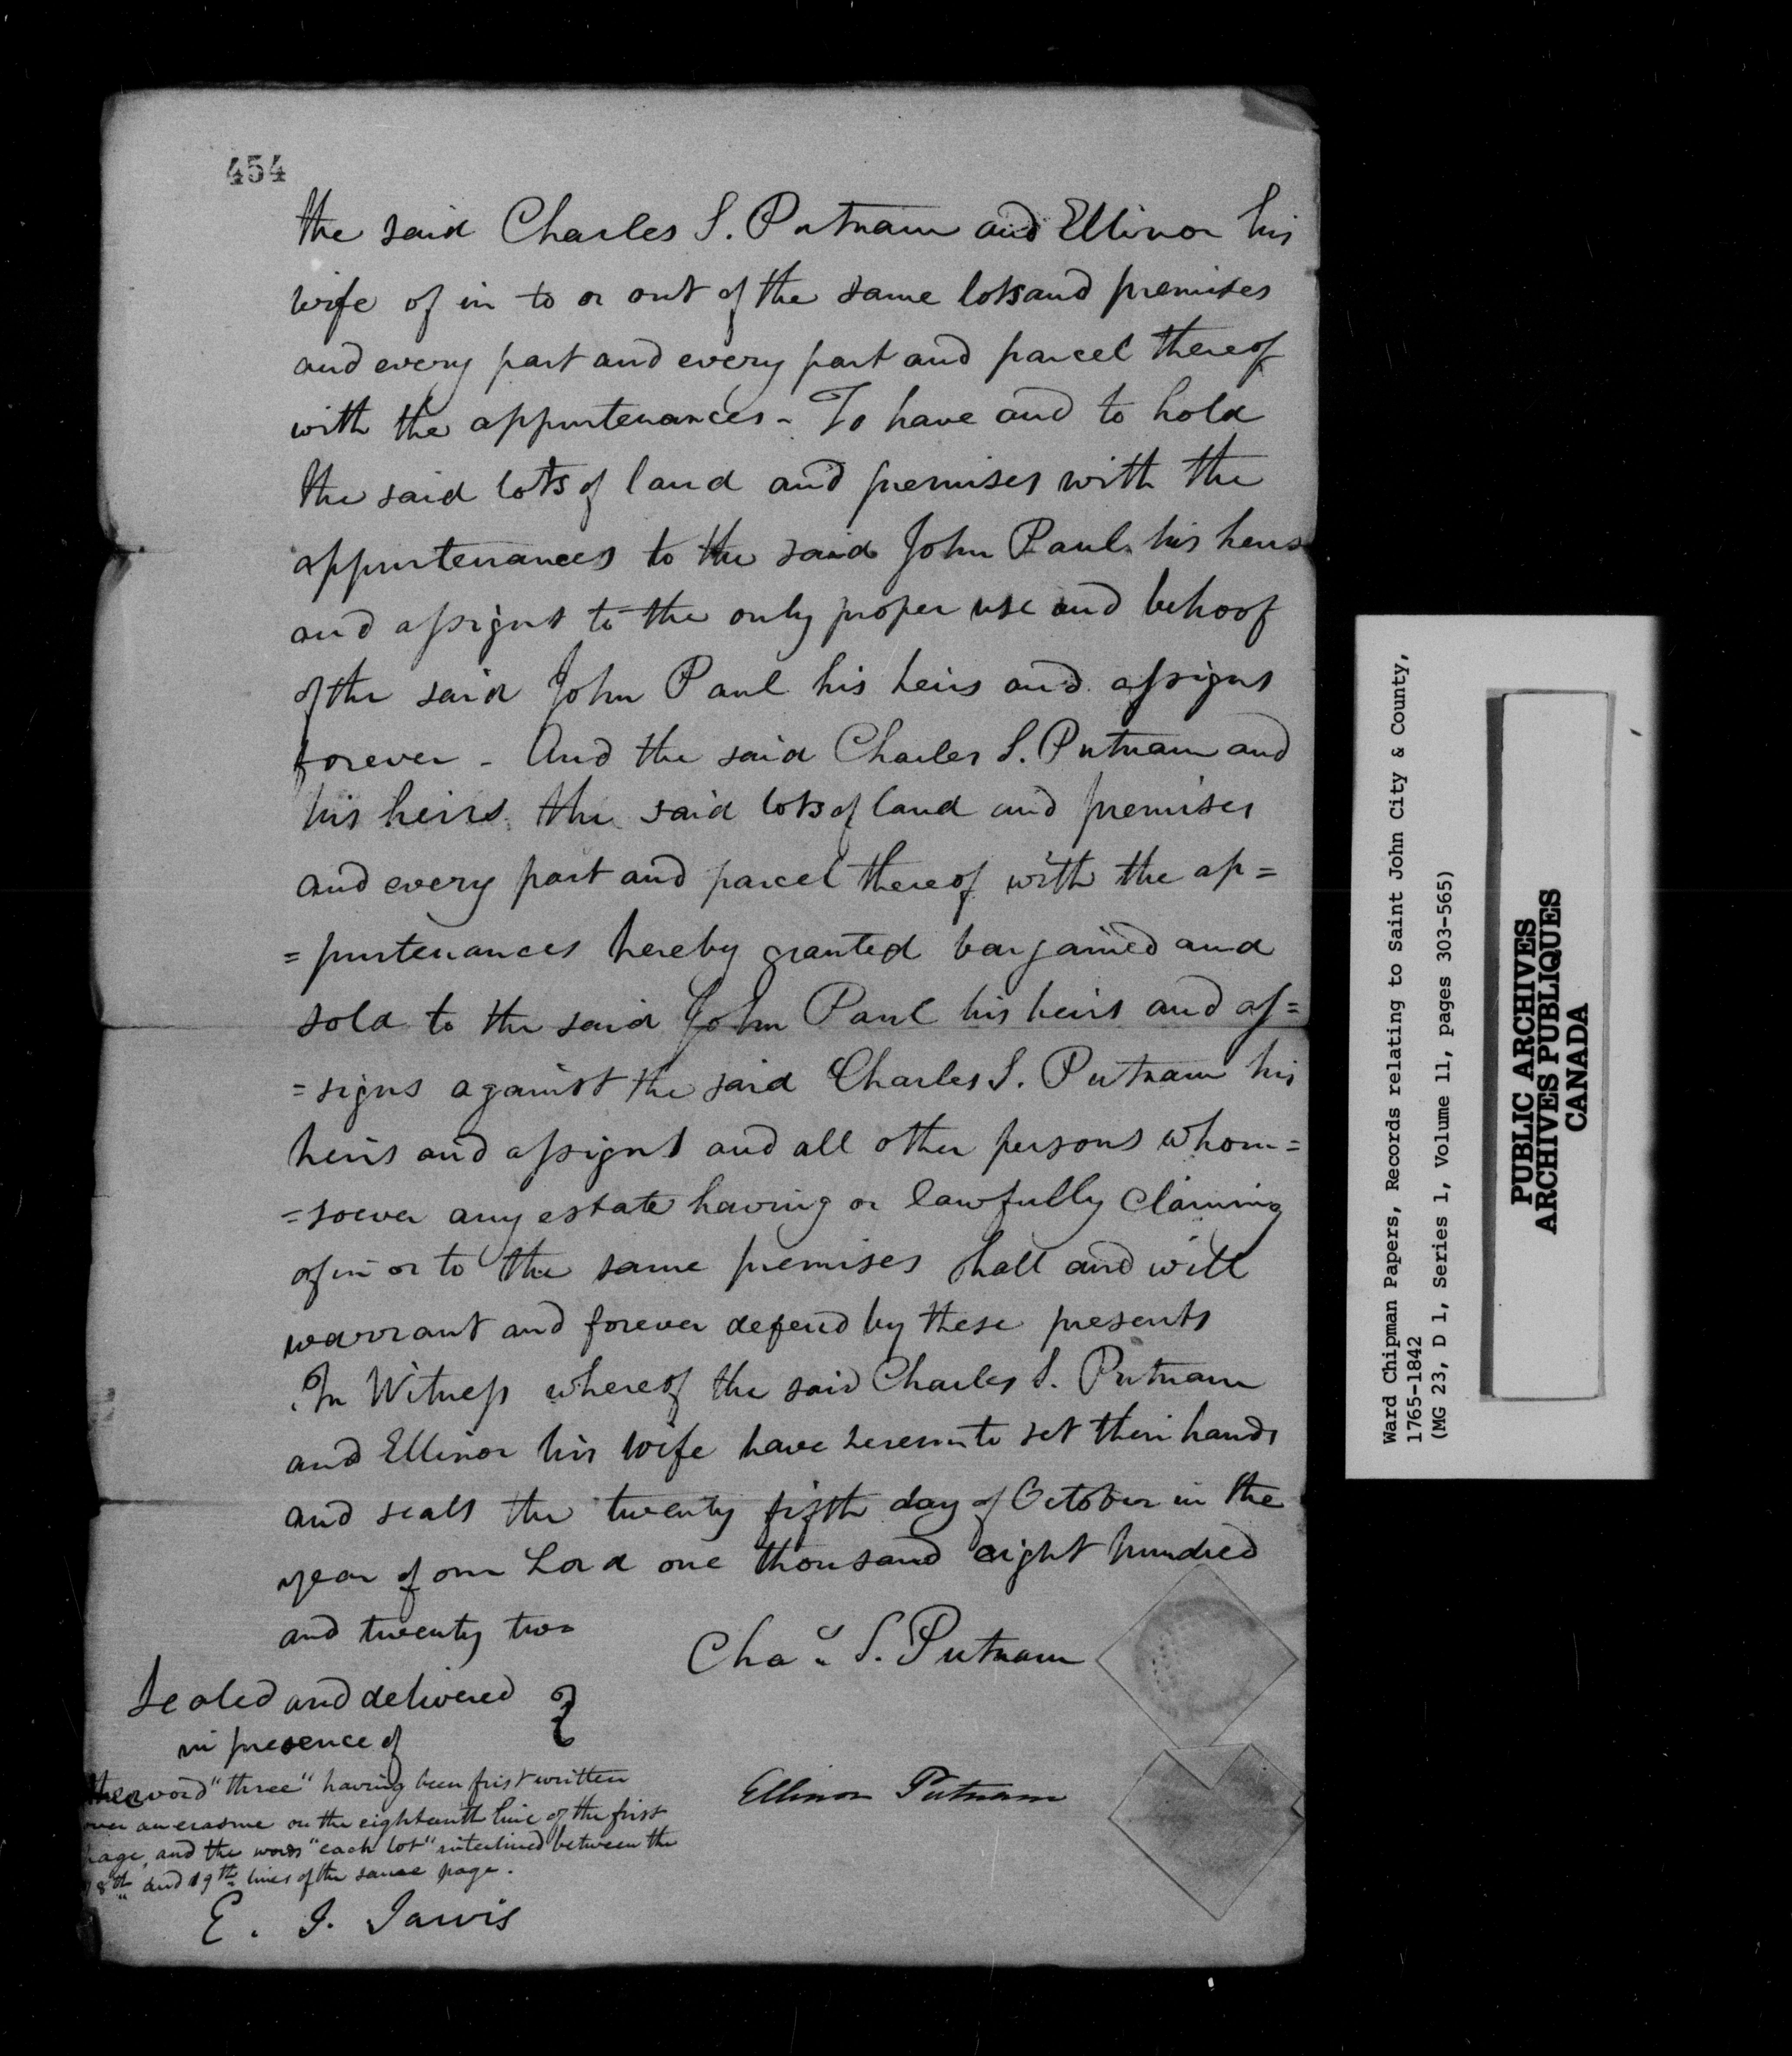 454
the said Charles S. Putnam and Ellinor his
wife of in to or out of the same lots and premises
and every part and every part and parcel thereof
with the appurtenances - To have and to hold
the said lots of land and premises with the
appurtenances to the said John Paul his heirs
and assigns to the only proper use and behoof
of the said John Paul his heirs and assigns
forever - And the said Charles S. Putnam and
his heirs the said lots of land and premises
and every part and parcel thereof with the ap=
=purtenances hereby granted bargained and
sold to the said John Paul his heirs and as=
=signs against the said Charles S. Putnam his
heirs and assigns and all other persons whom=
=soever any estate having or lawfully claiming
of in or to the same premises shall and will
warrant and forever defend by these presents
In Witness whereof the said Charles S. Putnam
and Ellinor his wife have hereunto set their hands
and seals the twenty fifth day of October in the
year of our Lord one thousand eight hundred
and twenty two
Chas. S. Putnam
Sealed and delivered
in presence of
the word "three" having been first written
over an erasure on the eighteenth line of the first
page, and the words "each lot" interlined between the
18th and 19th lines of the same page.
Ellinor Putnam
E. J. Jarvis
Ward Chipman Papers, Records relating to Saint John City & County,
1765-1842
(MG 23, D 1, Series 1, Volume 11, pages 303-565)
PUBLIC ARCHIVES
ARCHIVES PUBLIQUES
CANADA